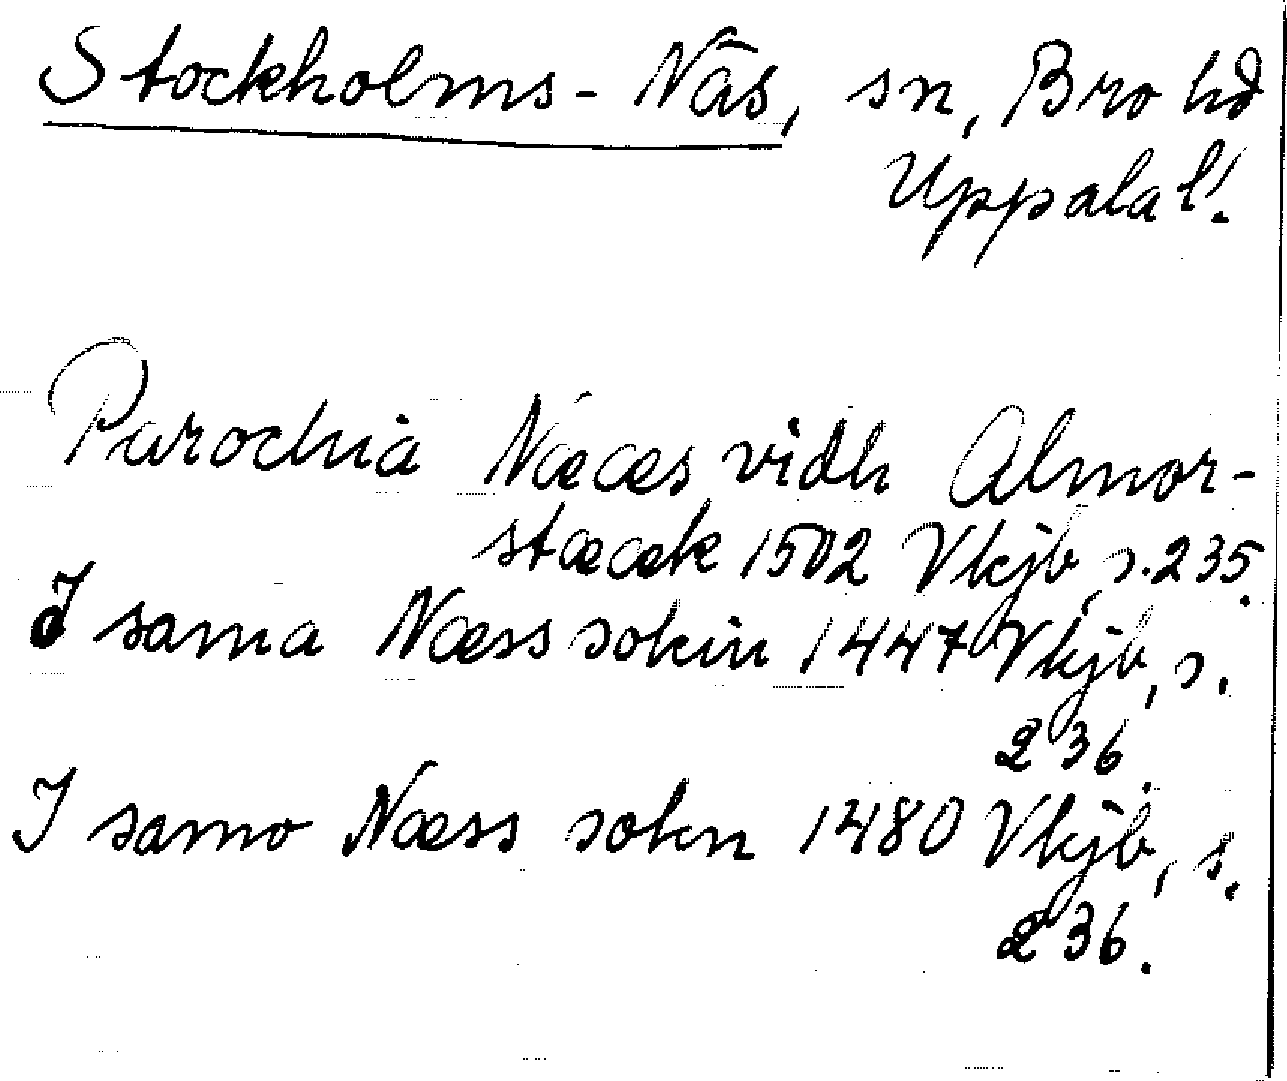 Stockholms-Näs, sn, Bro hd
Uppsala l.
Parochia Næcæs vidh Almor-
stæcæk 1502 Vkjb, s. 235.
I sama Næss sokin 1447 Vkjb, s.
236.
I samo Næss sokn 1480 Vkjb, s.
236.